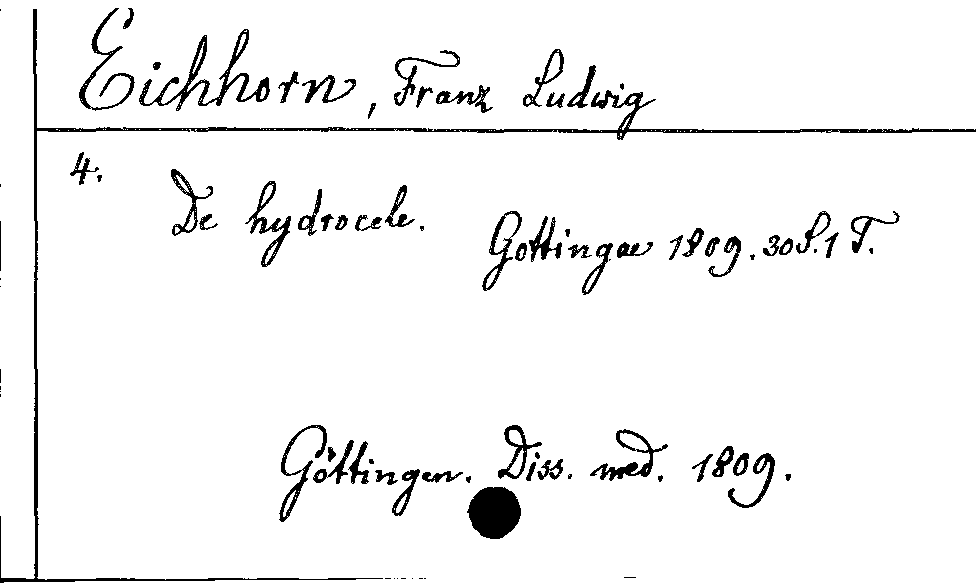 Eichhorn, Franz Ludwig
4.
De hydrocele.
Gottingae 1809. 30 S. 1 T.
Göttingen. Diss. med. 1809.